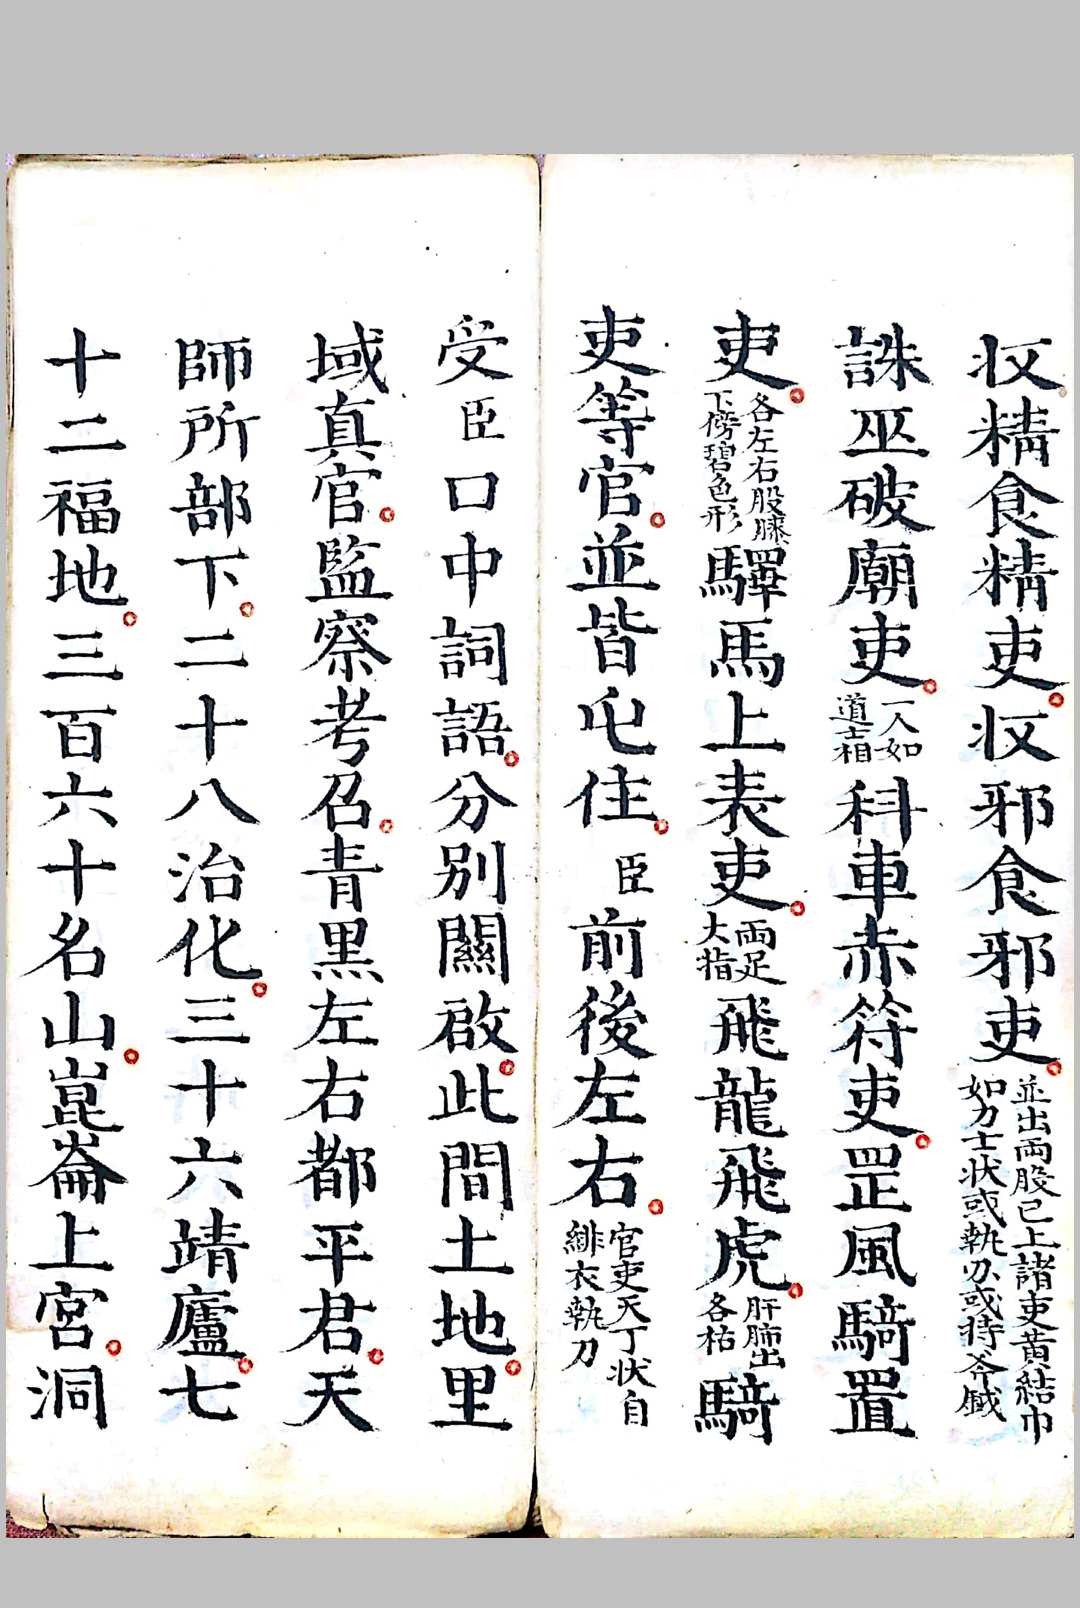 収精食精吏收邪食邪吏並出両股已上諸吏黄結巾如力士状或執刀或持斧鉞
誅巫破廟吏一人如道士相科車赤符吏罡風騎置
吏各左右股膝下傍碧色形驛馬上表吏両足大指飛龍飛虎肝肺出各祜騎
吏等官並皆屯住臣前後左右官吏天丁状自緋衣執刀
受臣口中詞語分別關啟此間土地里
域真官監察考召青黑左右都平君天
師所部下二十八治化三十六靖廬七
十二福地三百六十名山崑崙上宮洞